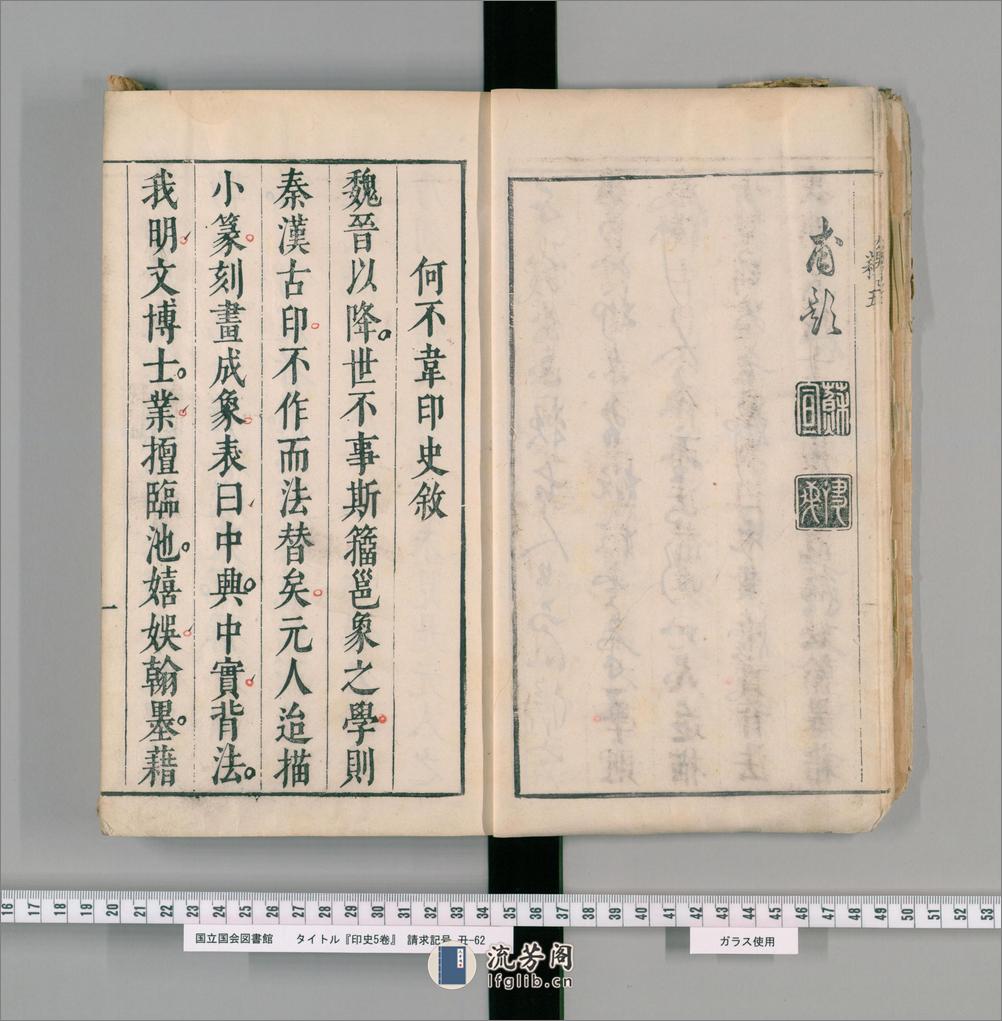 甫題
蘇宣
何不韋印史敘
魏晉以降世不事斯籀邕象之學則
秦漢古印不作而法替矣元人迨描
小篆刻畫成象表曰中興中實背法
我明文博士業擅臨池嬉娛翰墨藉
一
16 17 18 19 20 21 22 23 24 25 26 27 28 29 30 31 32 33 34 35 36 37 38 39 40 41 42 43 44 45 46 47 48 49 50 51 52 53
国立国会図書館 タイトル『印史5巻』 請求記号 丑-62
ガラス使用
流芳阁
lfglib.cn